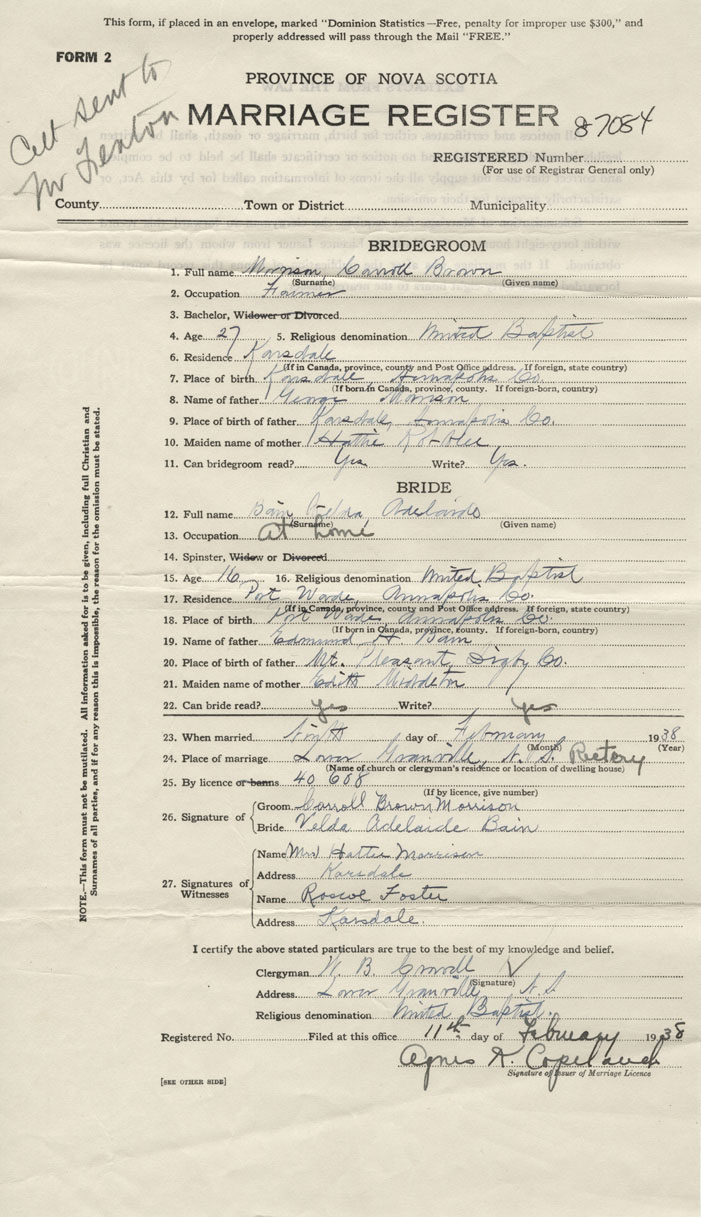 This form, if placed in an envelope, marked "Dominion Statistics—Free, penalty for improper use $300," and
properly addressed will pass through the Mail "FREE."
FORM 2
Cert sent to
Mr Fenton
PROVINCE OF NOVA SCOTIA
MARRIAGE REGISTER 87084
REGISTERED Number
(For use of Registrar General only)
County Town or District Municipality
BRIDEGROOM
1. Full name Morrison, Carroll Brown
(Surname) (Given name)
2. Occupation Farmer
3. Bachelor, Widower or Divorced
4. Age 27 5. Religious denomination United Baptist
6. Residence Karsdale
(If in Canada, province, county and Post Office address. If foreign, state country)
7. Place of birth Karsdale, Annapolis Co.
(If born in Canada, province, county. If foreign-born, country)
8. Name of father George Morrison
9. Place of birth of father Karsdale, Annapolis Co.
10. Maiden name of mother Hattie
11. Can bridegroom read? Yes Write? Yes.
BRIDE
12. Full name Bain Velda Adelaide
(Surname) (Given name)
13. Occupation At home
14. Spinster, Widow or Divorced
15. Age 16 16. Religious denomination United Baptist
17. Residence Port Wade, Annapolis Co.
(If in Canada, province, county and Post Office address. If foreign, state country)
18. Place of birth Port Wade, Annapolis Co.
(If born in Canada, province, county. If foreign-born, country)
19. Name of father Edmund H. Bain
20. Place of birth of father Mt. Pleasant, Digby Co.
21. Maiden name of mother Edith Middleton
22. Can bride read? yes Write? yes
23. When married day of February 1938
(Month) (Year)
24. Place of marriage Lower Granville, N. S. Rectory
(Name of church or clergyman's residence or location of dwelling house)
25. By licence or banns 40 608
(If by licence, give number)
26. Signature of Groom Carroll Brown Morrison
Bride Velda Adelaide Bain
27. Signatures of Witnesses
Name Mrs Hattie Morrison
Address Karsdale
Name Roscoe Foster
Address Karsdale.
I certify the above stated particulars are true to the best of my knowledge and belief.
Clergyman W. B. Crowell
(Signature)
Address Lower Granville, N. S.
Religious denomination United Baptist.
Registered No. Filed at this office 11th day of February 1938
Agnes K. Copeland
Signature of Issuer of Marriage Licence
[SEE OTHER SIDE]
NOTE.—This form must not be mutilated. All information asked for is to be given, including full Christian and
Surnames of all parties, and if for any reason this is impossible, the reason for the omission must be stated.